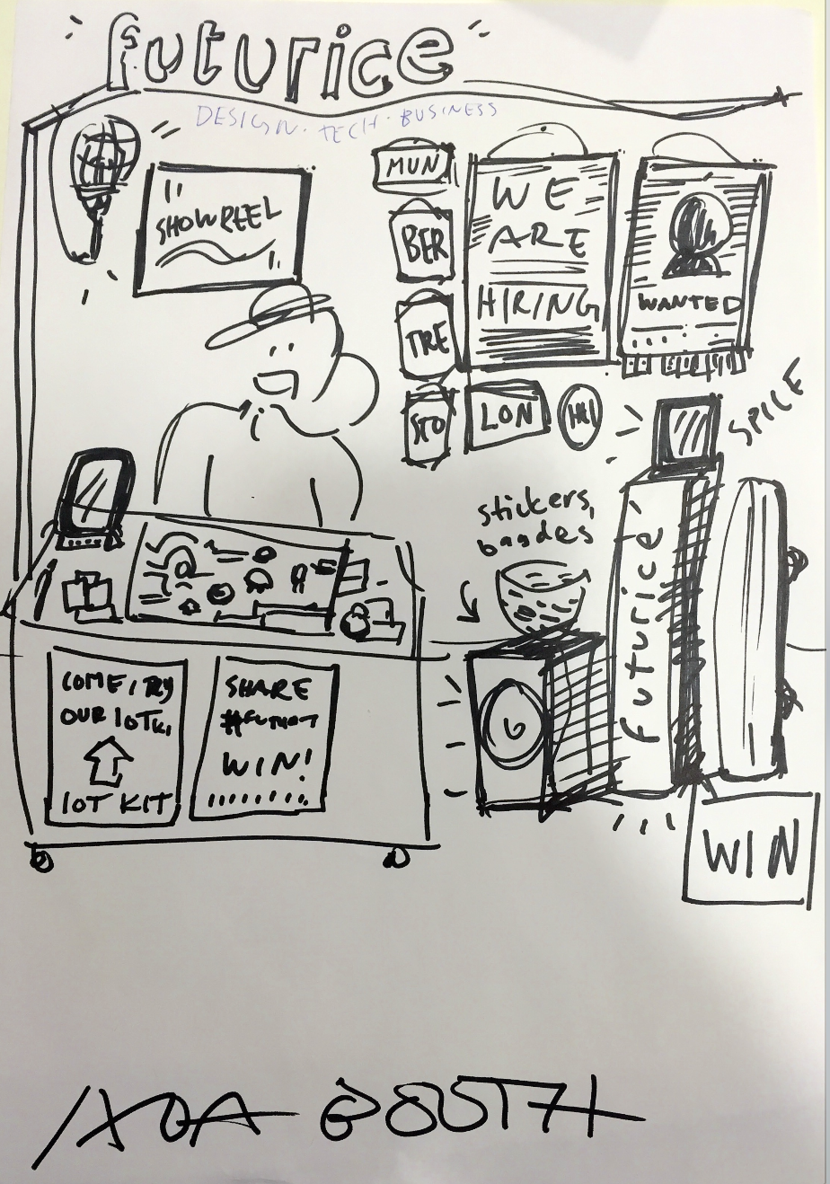 futurice
DESIGN · TECH · BUSINESS
SHOWREEL
MUN
BER
TRE
STO
LON
HEL
WE
ARE
HIRING
WANTED
SPICE
stickers,
bagdes
futurice
COME, TRY
OUR IOTKI
IOT KIT
SHARE
WIN!
WIN
BOOTH